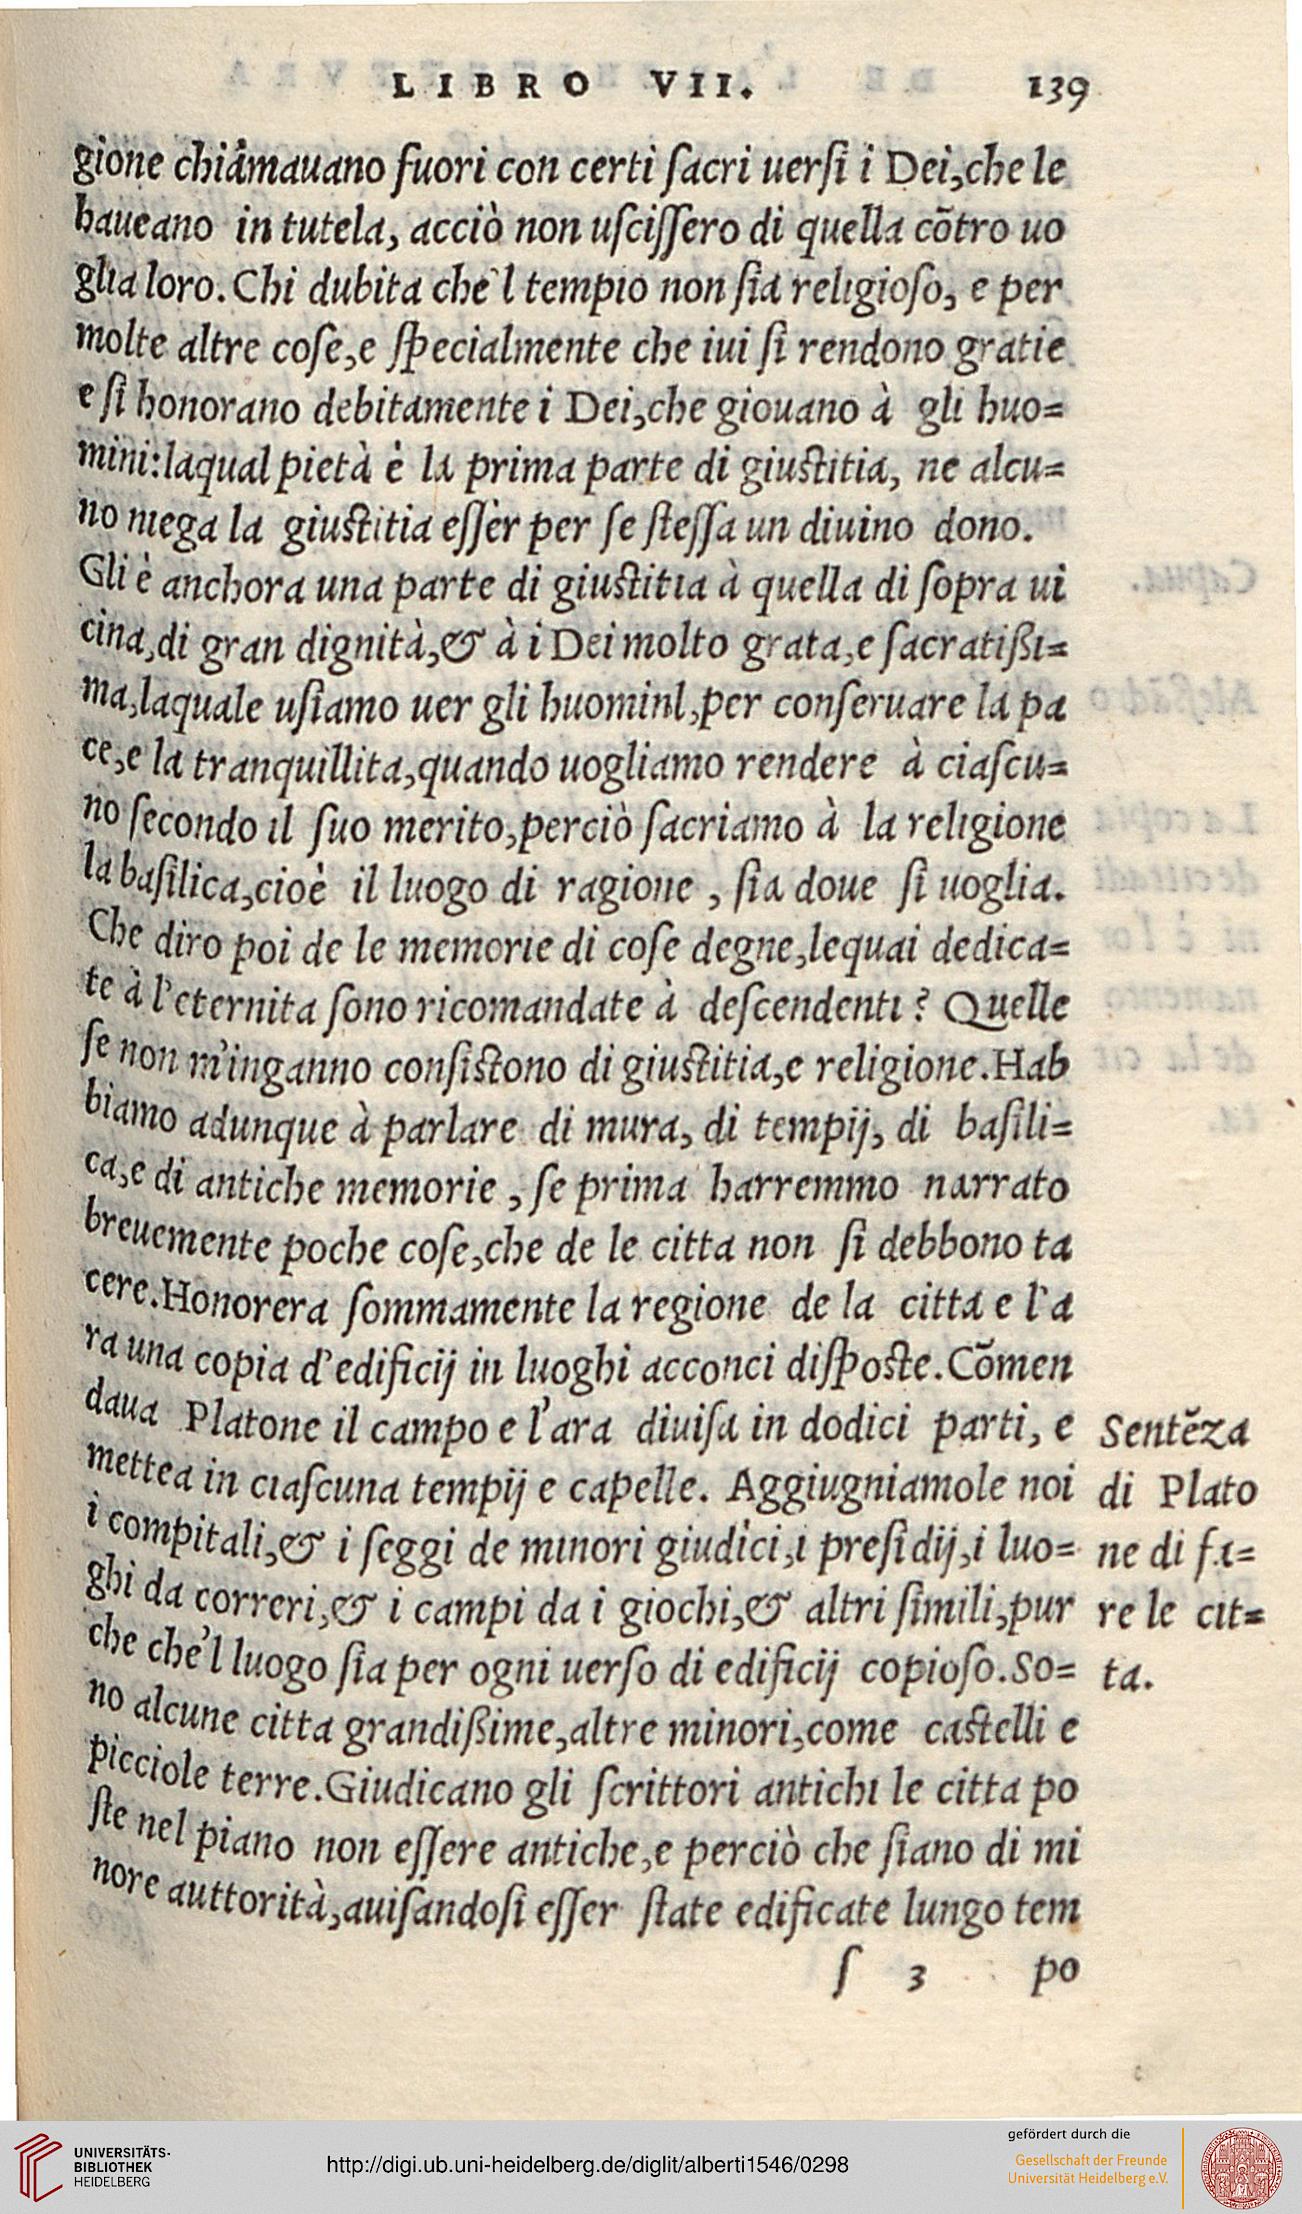 LIBRO VII. 139
gione chiamauano fuori con certi ſacri uerſi i Dei,che le
haueano in tutela, acciò non uſciſſero di quella cõtro uo
glia loro. Chi dubita che'l tempio non ſia religioſo, e per
molte altre coſe,e ſpecialmente che iui ſi rendono gratie
e ſi honorano debitamente i Dei,che giouano à gli huo=
mini:laqual pietà è la prima parte di giuſtitia, ne alcu=
no niega la giuſtitia eſſer per ſe ſteſſa un diuino dono.
Gli è anchora una parte di giuſtitia à quella di ſopra ui
cina,di gran dignità,& à i Dei molto grata,e ſacratißi=
ma,laquale uſiamo uer gli huominl,per conſeruare la pa
ce,e la tranquillita,quando uogliamo rendere à ciaſcu=
no ſecondo il ſuo merito,perciò ſacriamo à la religione
la baſilica,cioè il luogo di ragione , ſia doue ſi uoglia.
Che diro poi de le memorie di coſe degne,lequai dedica=
te à l'eternita ſono ricomandate à deſcendenti? Quelle
ſe non m'inganno conſiſtono di giuſtitia,e religione.Hab
biamo adunque à parlare di mura, di tempij, di baſili=
ca,e di antiche memorie , ſe prima harremmo narrato
breuemente poche coſe,che de le citta non ſi debbono ta
cere.Honorera ſommamente la regione de la citta e l'a
ra una copia d'edificij in luoghi acconci diſpoſte.Cõmen
daua Platone il campo e l'ara diuiſa in dodici parti, e
mettea in ciaſcuna tempij e capelle. Aggiugniamole noi
i compitali,& i ſeggi de minori giudici,i preſidij,i luo=
ghi da correri,& i campi da i giochi,& altri ſimili,pur
che che'l luogo ſia per ogni uerſo di edificij copioſo.So=
no alcune citta grandißime,altre minori,come caſtelli e
picciole terre.Giudicano gli ſcrittori antichi le citta po
ſte nel piano non eſſere antiche,e perciò che ſiano di mi
nore auttorità,auiſandoſi eſſer ſtate edificate lungo tem
ſ 3 po
Sentẽza
di Plato
ne di fa=
re le cit=
ta.
UNIVERSITÄTS-
BIBLIOTHEK
HEIDELBERG
http://digi.ub.uni-heidelberg.de/diglit/alberti1546/0298
gefördert durch die
Gesellschaft der Freunde
Universität Heidelberg e.V.